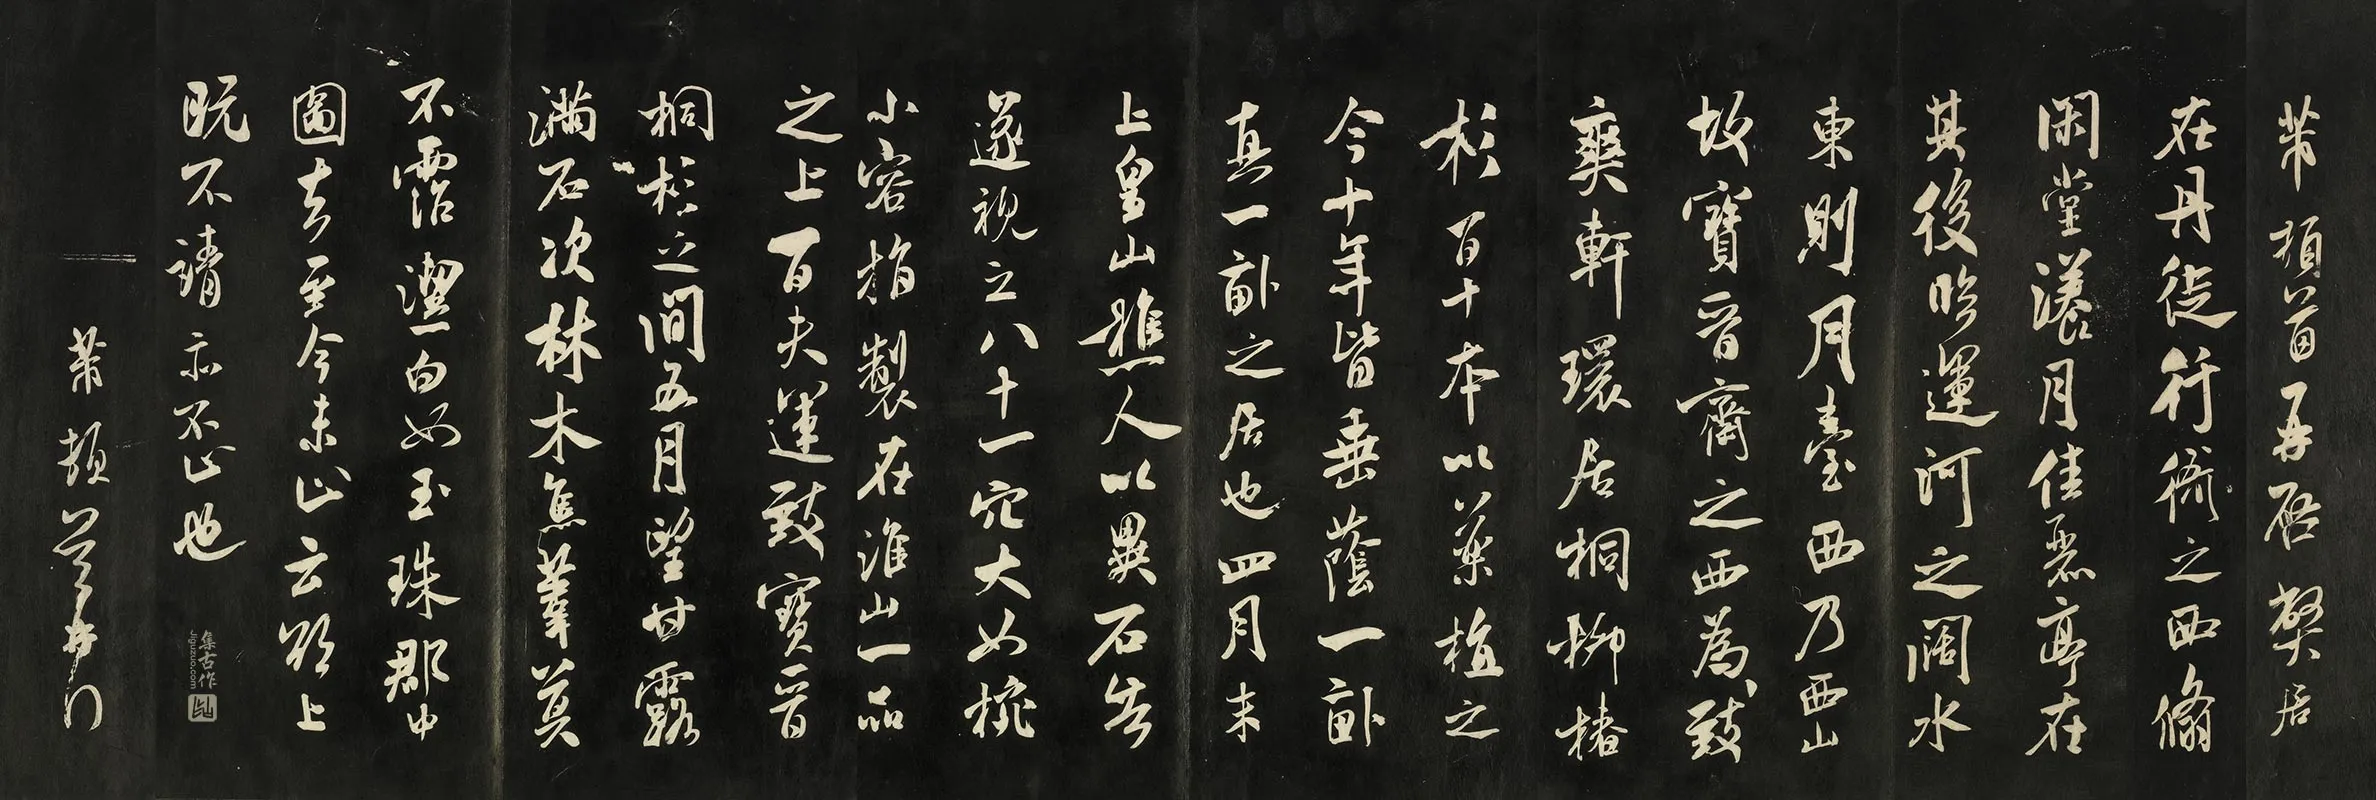 芾頓首再啓弊居
在丹徒行衙之西翛
閑堂漾月佳麗亭在
其後臨運河之闊水
東則月臺西乃西山
故寶晉齋之西為致
爽軒環居桐柳椿
杉百十本以藥植之
今十年皆垂蔭一畝
真一畝之居也四月末
上皇山樵人以異石告
遂視之八十一穴大如椀
小容指製在淮山一品
之上百夫運致寶晉
桐杉之間五月望甘露
滿石次林木焦葦莫
不霑潔白如玉珠郡中
圖去至今未止云欲上
既不請亦不止也
芾頓首再拜
集古作
Jiguzuo.com